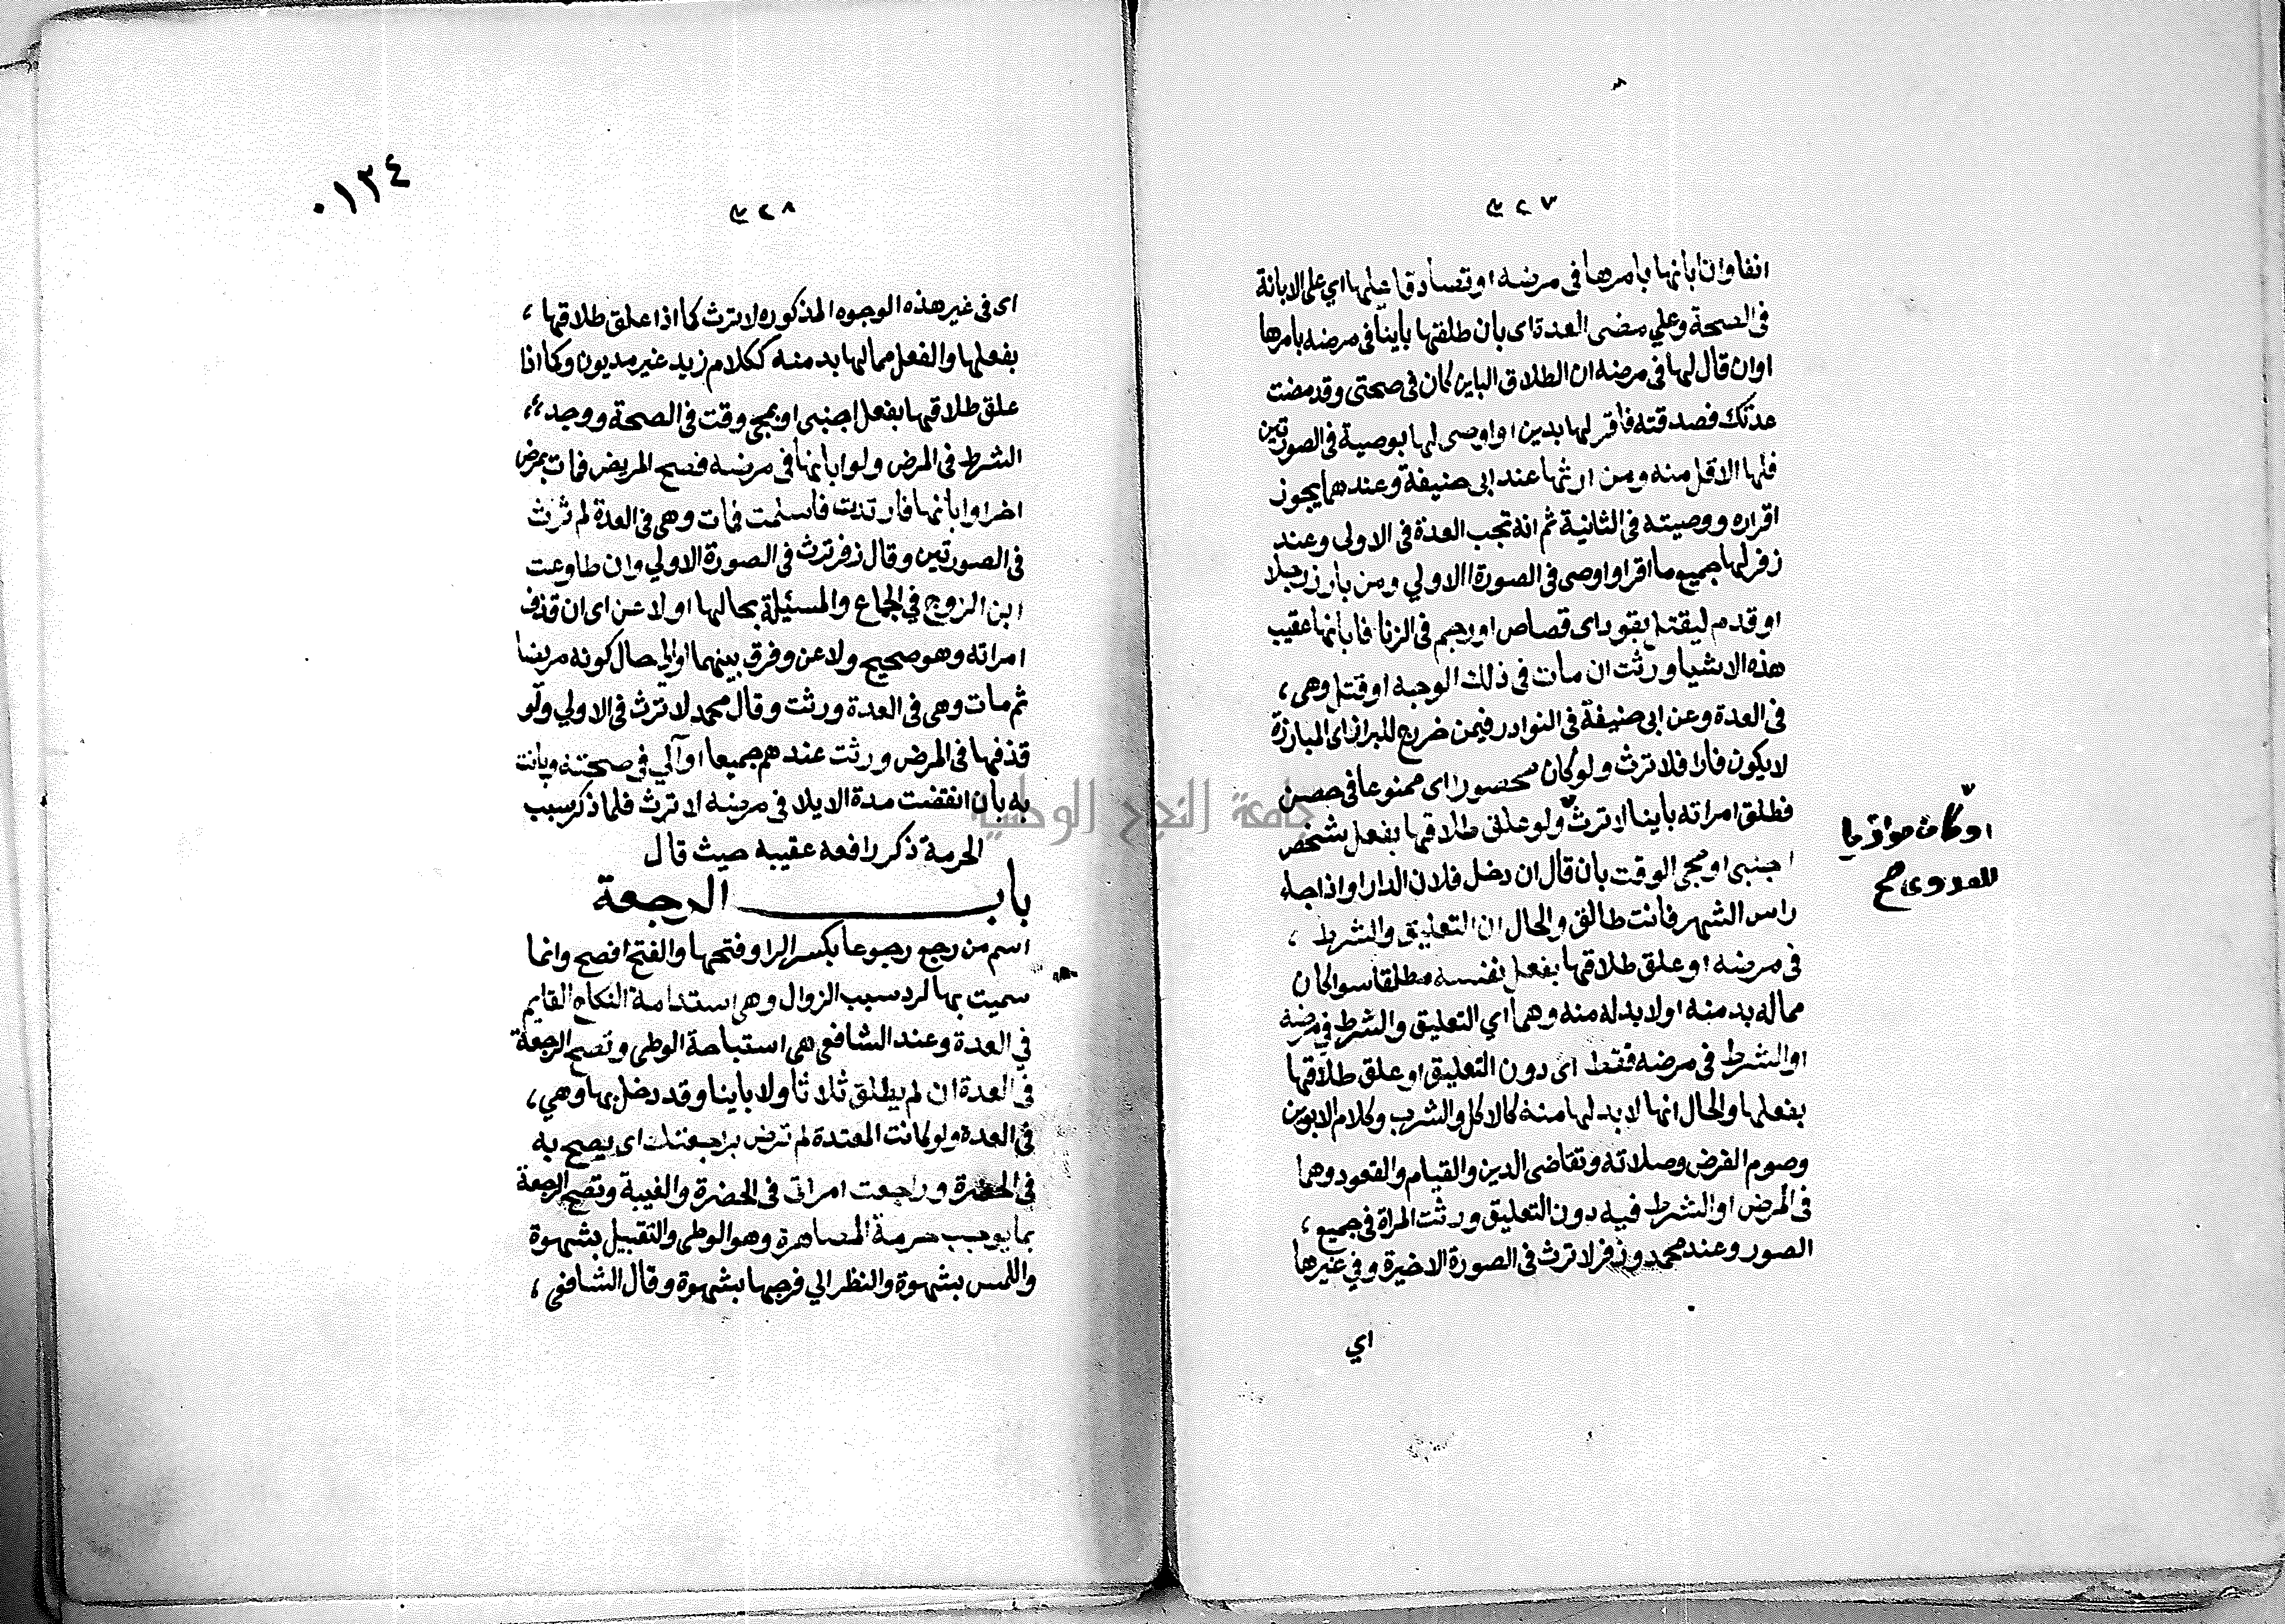 ٣٢٧
انفا وان ابانها بامرها فى مرضه او تصادقا عليها اي على الابانة
فى الصحة وعلي مضى العدة اى بان طلقها باينا فى مرضه بامرها
او ان قال لها فى مرضه ان الطلاق الباين كان فى صحتى وقد مضت
عدتك فصدقته فاقر لها بدين او اوصى لها بوصية فى الصورتين
فلها الاقل منه ومن ارثها عند ابى حنيفة وعندهما يجوز
اقراره ووصيته فى الثانية ثم انه تجب العدة فى الاولى وعند
زفر لها جميع ما اقر او اوصى فى الصورة الاولي ومن بارز رجلا
او قدم ليقتل بقود اى قصاص او رجم فى الزنا فابانها عقيب
هذه الاشيا ورثت ان مات فى ذلك الوجه او قتل وهى ،
فى العدة وعن ابى حنيفة فى النوادر فيمن خرج للبراز اى المبارزة
لا يكون فارا فلا ترث ولو كان محصورا اى ممنوعا فى حصن
فطلق امراته باينا لا ترث ولو علق طلاقها بفعل شخص
اجنبى او مجى الوقت بان قال ان دخل فلان الدار او اذا جا
راس الشهر فانت طالق والحال ان التعليق والشرط ،
فى مرضه او علق طلاقها بفعل نفسه مطلقا سوا كان
مماله بد منه او لا بد له منه وهما اي التعليق والشرط في مرضه
او الشرط فى مرضه فقط اى دون التعليق او علق طلاقها
بفعلها والحال انها لا بد لها منه كالاكل والشرب وكلام الابوين
وصوم الفرض وصلاته وتقاضى الدين والقيام والقعود وهما
فى المرض او الشرط فيه دون التعليق ورثت المراة فى جميع ،
الصور وعند محمد وزفر لا ترث فى الصورة الاخيرة وفي غيرها
اي
او كان موازيا
للعدوى صح
٣٢٨
٠١٣٤
اى فى غير هذه الوجوه المذكوره لا ترث كما اذا علق طلاقها ،
بفعلها والفعل مما لها بد منه ككلام زيد غير مديون وكما اذا
علق طلاقها بفعل اجنبى او بمجى وقت فى الصحة ووجد ،
الشرط فى المرض ولو ابانها فى مرضه فصح المريض فمات بمرض
اخر او ابانها فارتدت فاسلمت فمات وهى فى العدة لم ترث
فى الصورتين وقال زفر ترث فى الصورة الاولي وان طاوعت
ابن الزوج في الجماع والمسئلة بحالها او لاعن اى ان قذف
امراته وهو صحيح ولاعن وفرق بينهما او الي حال كونه مريضا
ثم مات وهى فى العدة ورثت وقال محمد لا ترث فى الاولي ولو
قذفها فى المرض ورثت عندهم جميعا او آلي فى صحته وبانت
به بان انقضت مدة الايلا فى مرضه لا ترث فلما ذكر سبب
الحرمة ذكر رافعه عقيبه حيث قال
باب الرجعة
اسم من رجع رجوعا بكسر الرا وفتحها والفتح افصح وانما
سميت بها لرد سبب الزوال وهى استدامة النكاح القايم
في العدة وعند الشافعى هى استباحة الوطى وتصح الرجعة
فى العدة ان لم يطلق ثلاثا ولا باينا وقد دخل بها وهي ،
فى العدة ولو كانت المعتدة لم ترض براجعتك اى يصح به
فى الحضرة وراجعت امراتى فى الحضرة والغيبة وتصح الرجعة
بما يوجب حرمة المصاهرة وهو الوطى والتقبيل بشهوة
واللمس بشهوة والنظر الي فرجها بشهوة وقال الشافعى ،
جامعة النجاح الوطنية